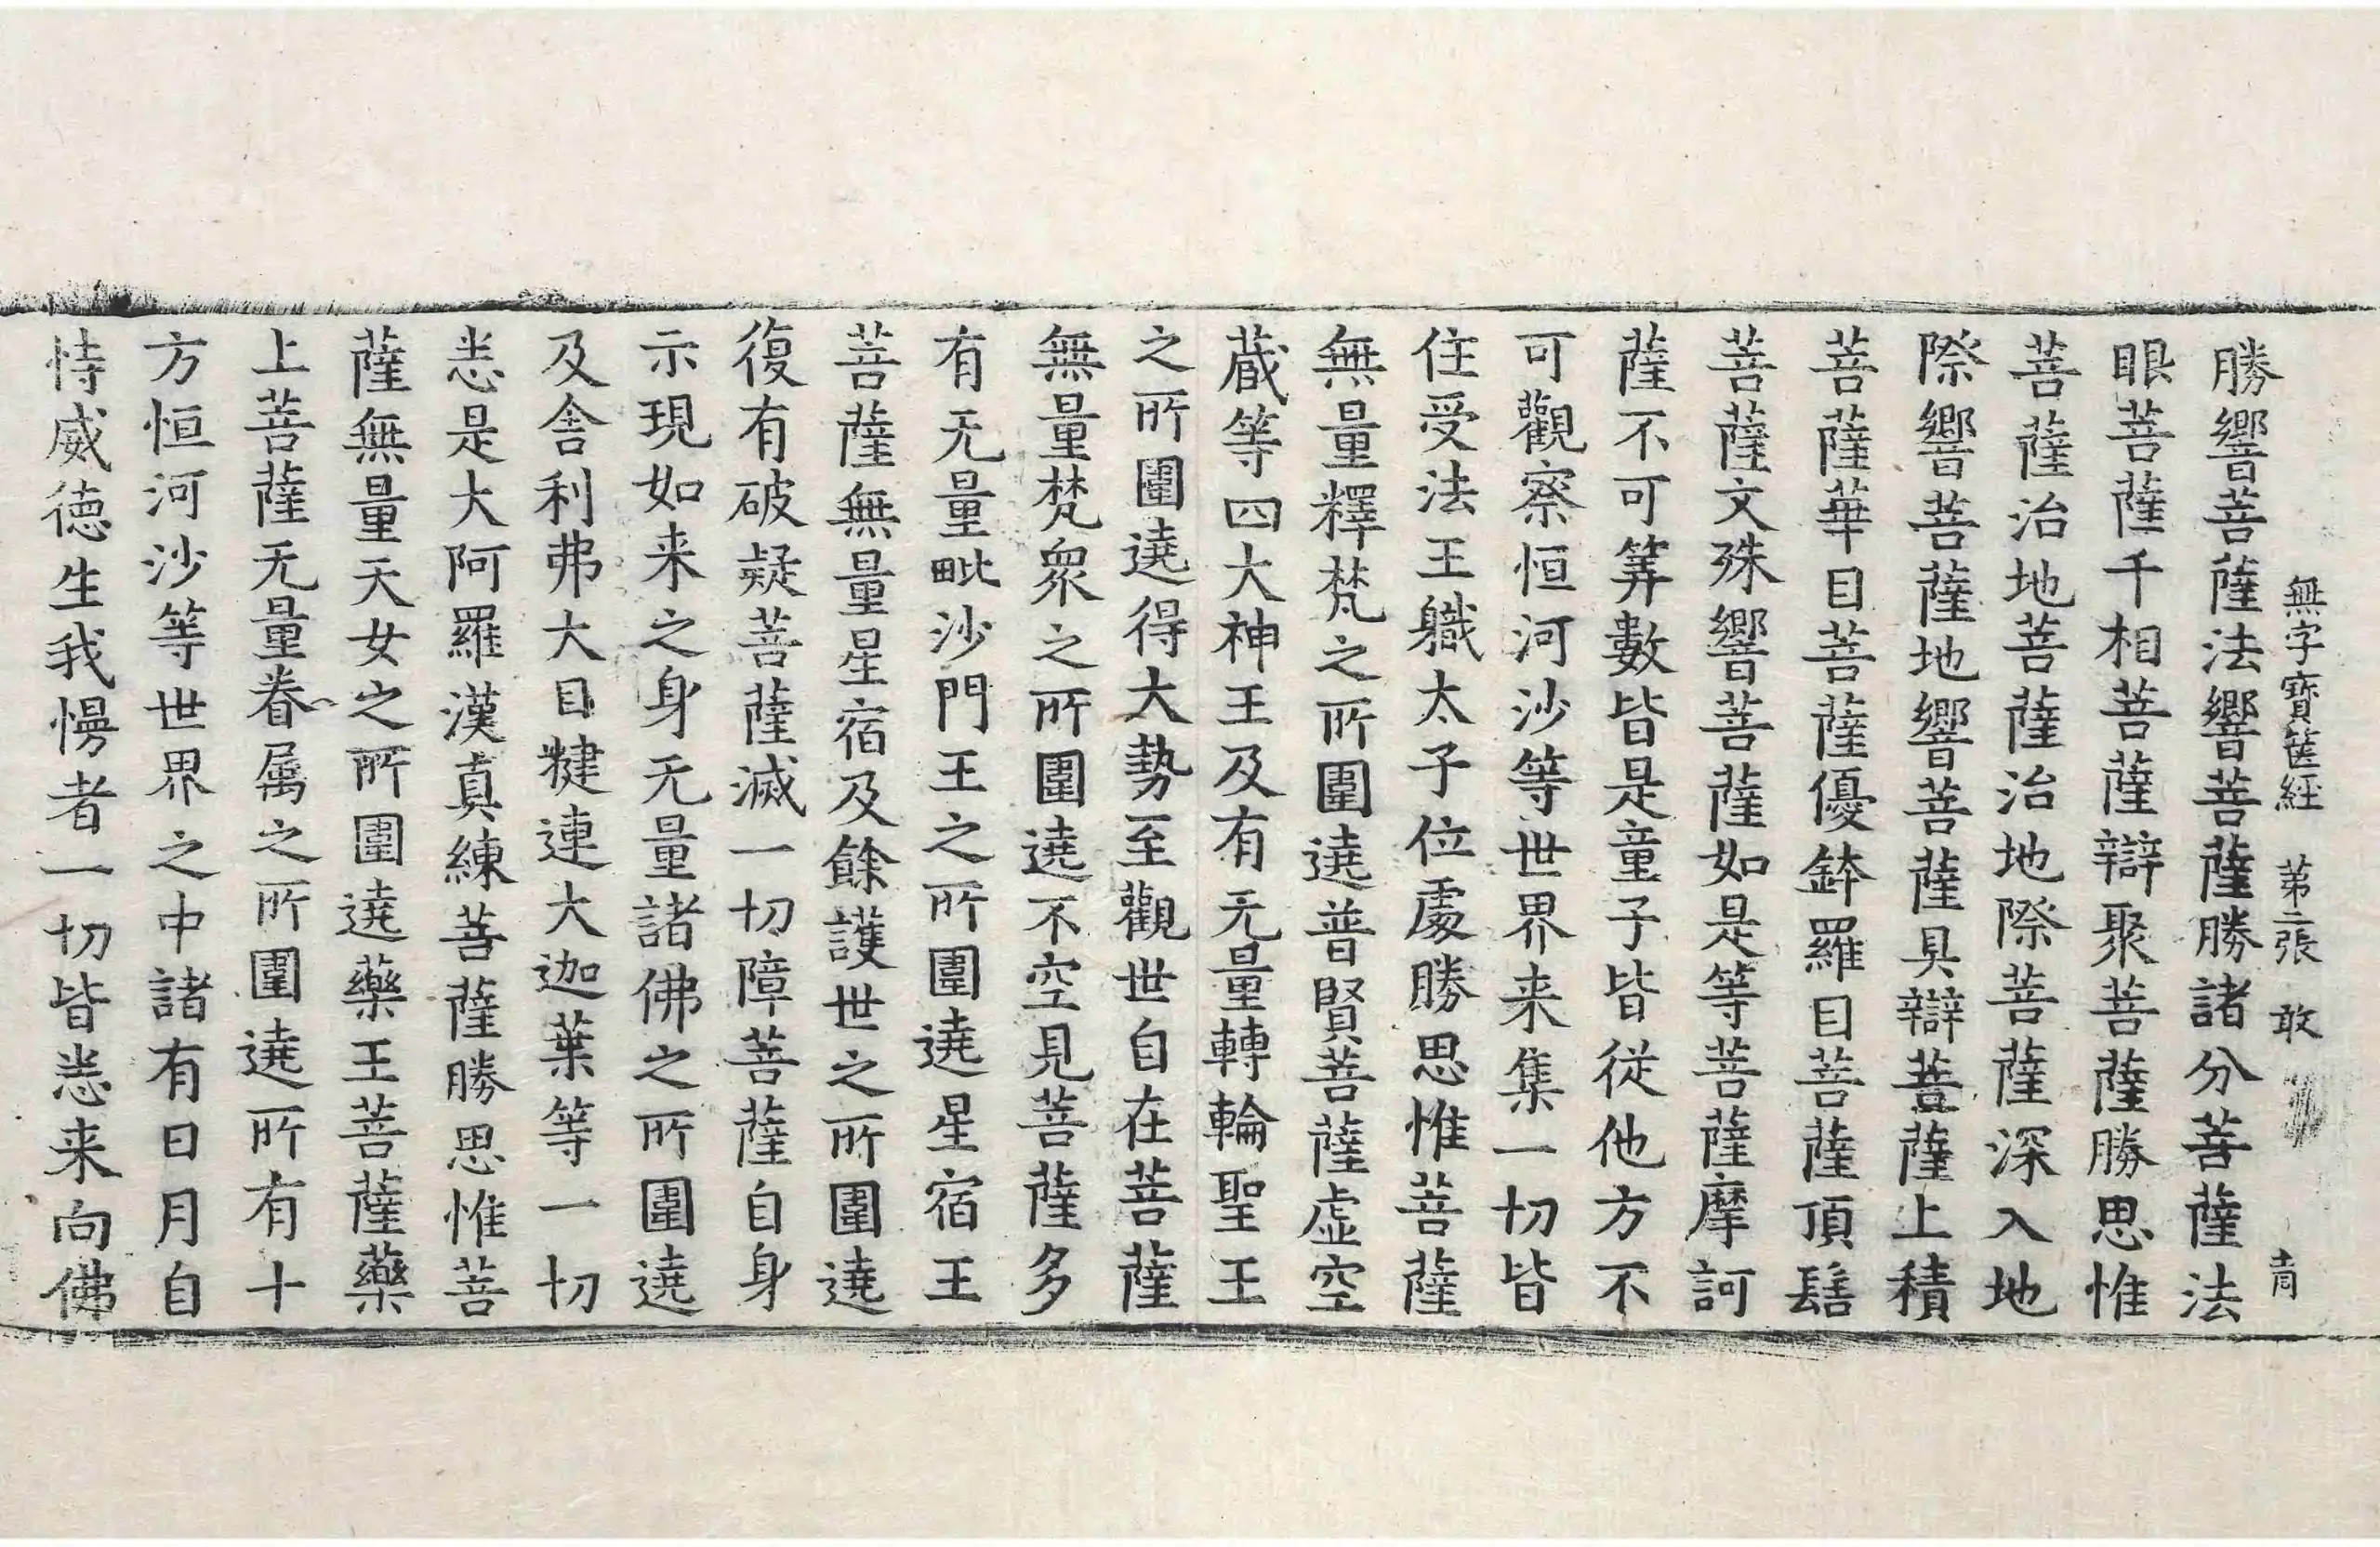 無字寶篋經 第二張 敢 青
勝響菩薩法響菩薩勝諸分菩薩法
眼菩薩千相菩薩辯聚菩薩勝思惟
菩薩治地菩薩治地際菩薩深入地
際響菩薩地響菩薩具辯菩薩上積
菩薩華目菩薩優鉢羅目菩薩頂髻
菩薩文殊響菩薩如是等菩薩摩訶
薩不可筭數皆是童子皆從他方不
可觀察恒河沙等世界来集一切皆
住受法王軄太子位處勝思惟菩薩
無量釋梵之所圍遶普賢菩薩虛空
蔵等四大神王及有无量轉輪聖王
之所圍遶得大勢至觀世自在菩薩
無量梵眾之所圍遶不空見菩薩多
有无量毗沙門王之所圍遶星宿王
菩薩無量星宿及餘護世之所圍遶
復有破疑菩薩滅一切障菩薩自身
示現如来之身无量諸佛之所圍遶
及舍利弗大目揵連大迦葉等一切
悉是大阿羅漢真練菩薩勝思惟菩
薩無量天女之所圍遶藥王菩薩藥
上菩薩无量眷属之所圍遶所有十
方恒河沙等世界之中諸有日月自
恃威德生我慢者一切皆悉来向佛